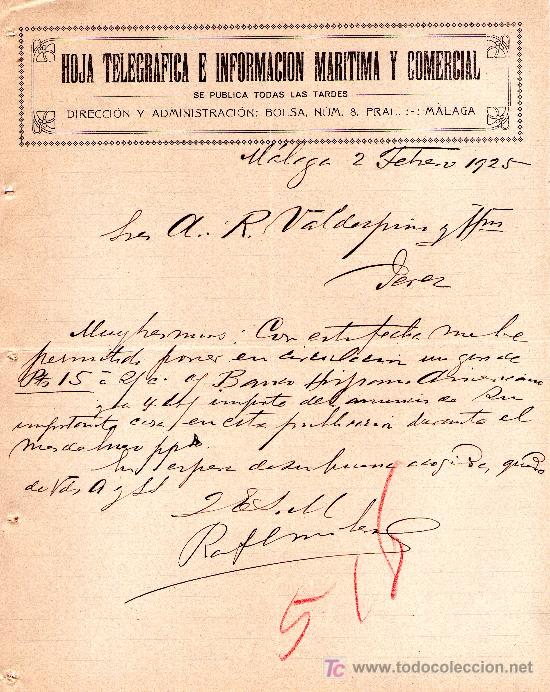 HOJA TELEGRÁFICA E INFORMACION MARITIMA Y COMERCIAL
SE PUBLICA TODAS LAS TARDES
DIRECCIÓN Y ADMINISTRACIÓN: BOLSA, NÚM. 8. PRAL. :-: MÁLAGA
Málaga 2 Febrero 1925
Sres A. R. Valdespino y Hno
Jerez
Muy Sres mios: Con esta fecha me he
permitido poner en circulacion un giro de
Pts 15 a c/ Banco Hispano Americano
importe del anuncio de su
importante casa en esta publicacion durante el
mes de Enero ppdo
En espera de su buena acogida, quedo
de Vds A y SS
Q E S. M
518
todocoleccion
www.todocoleccion.net